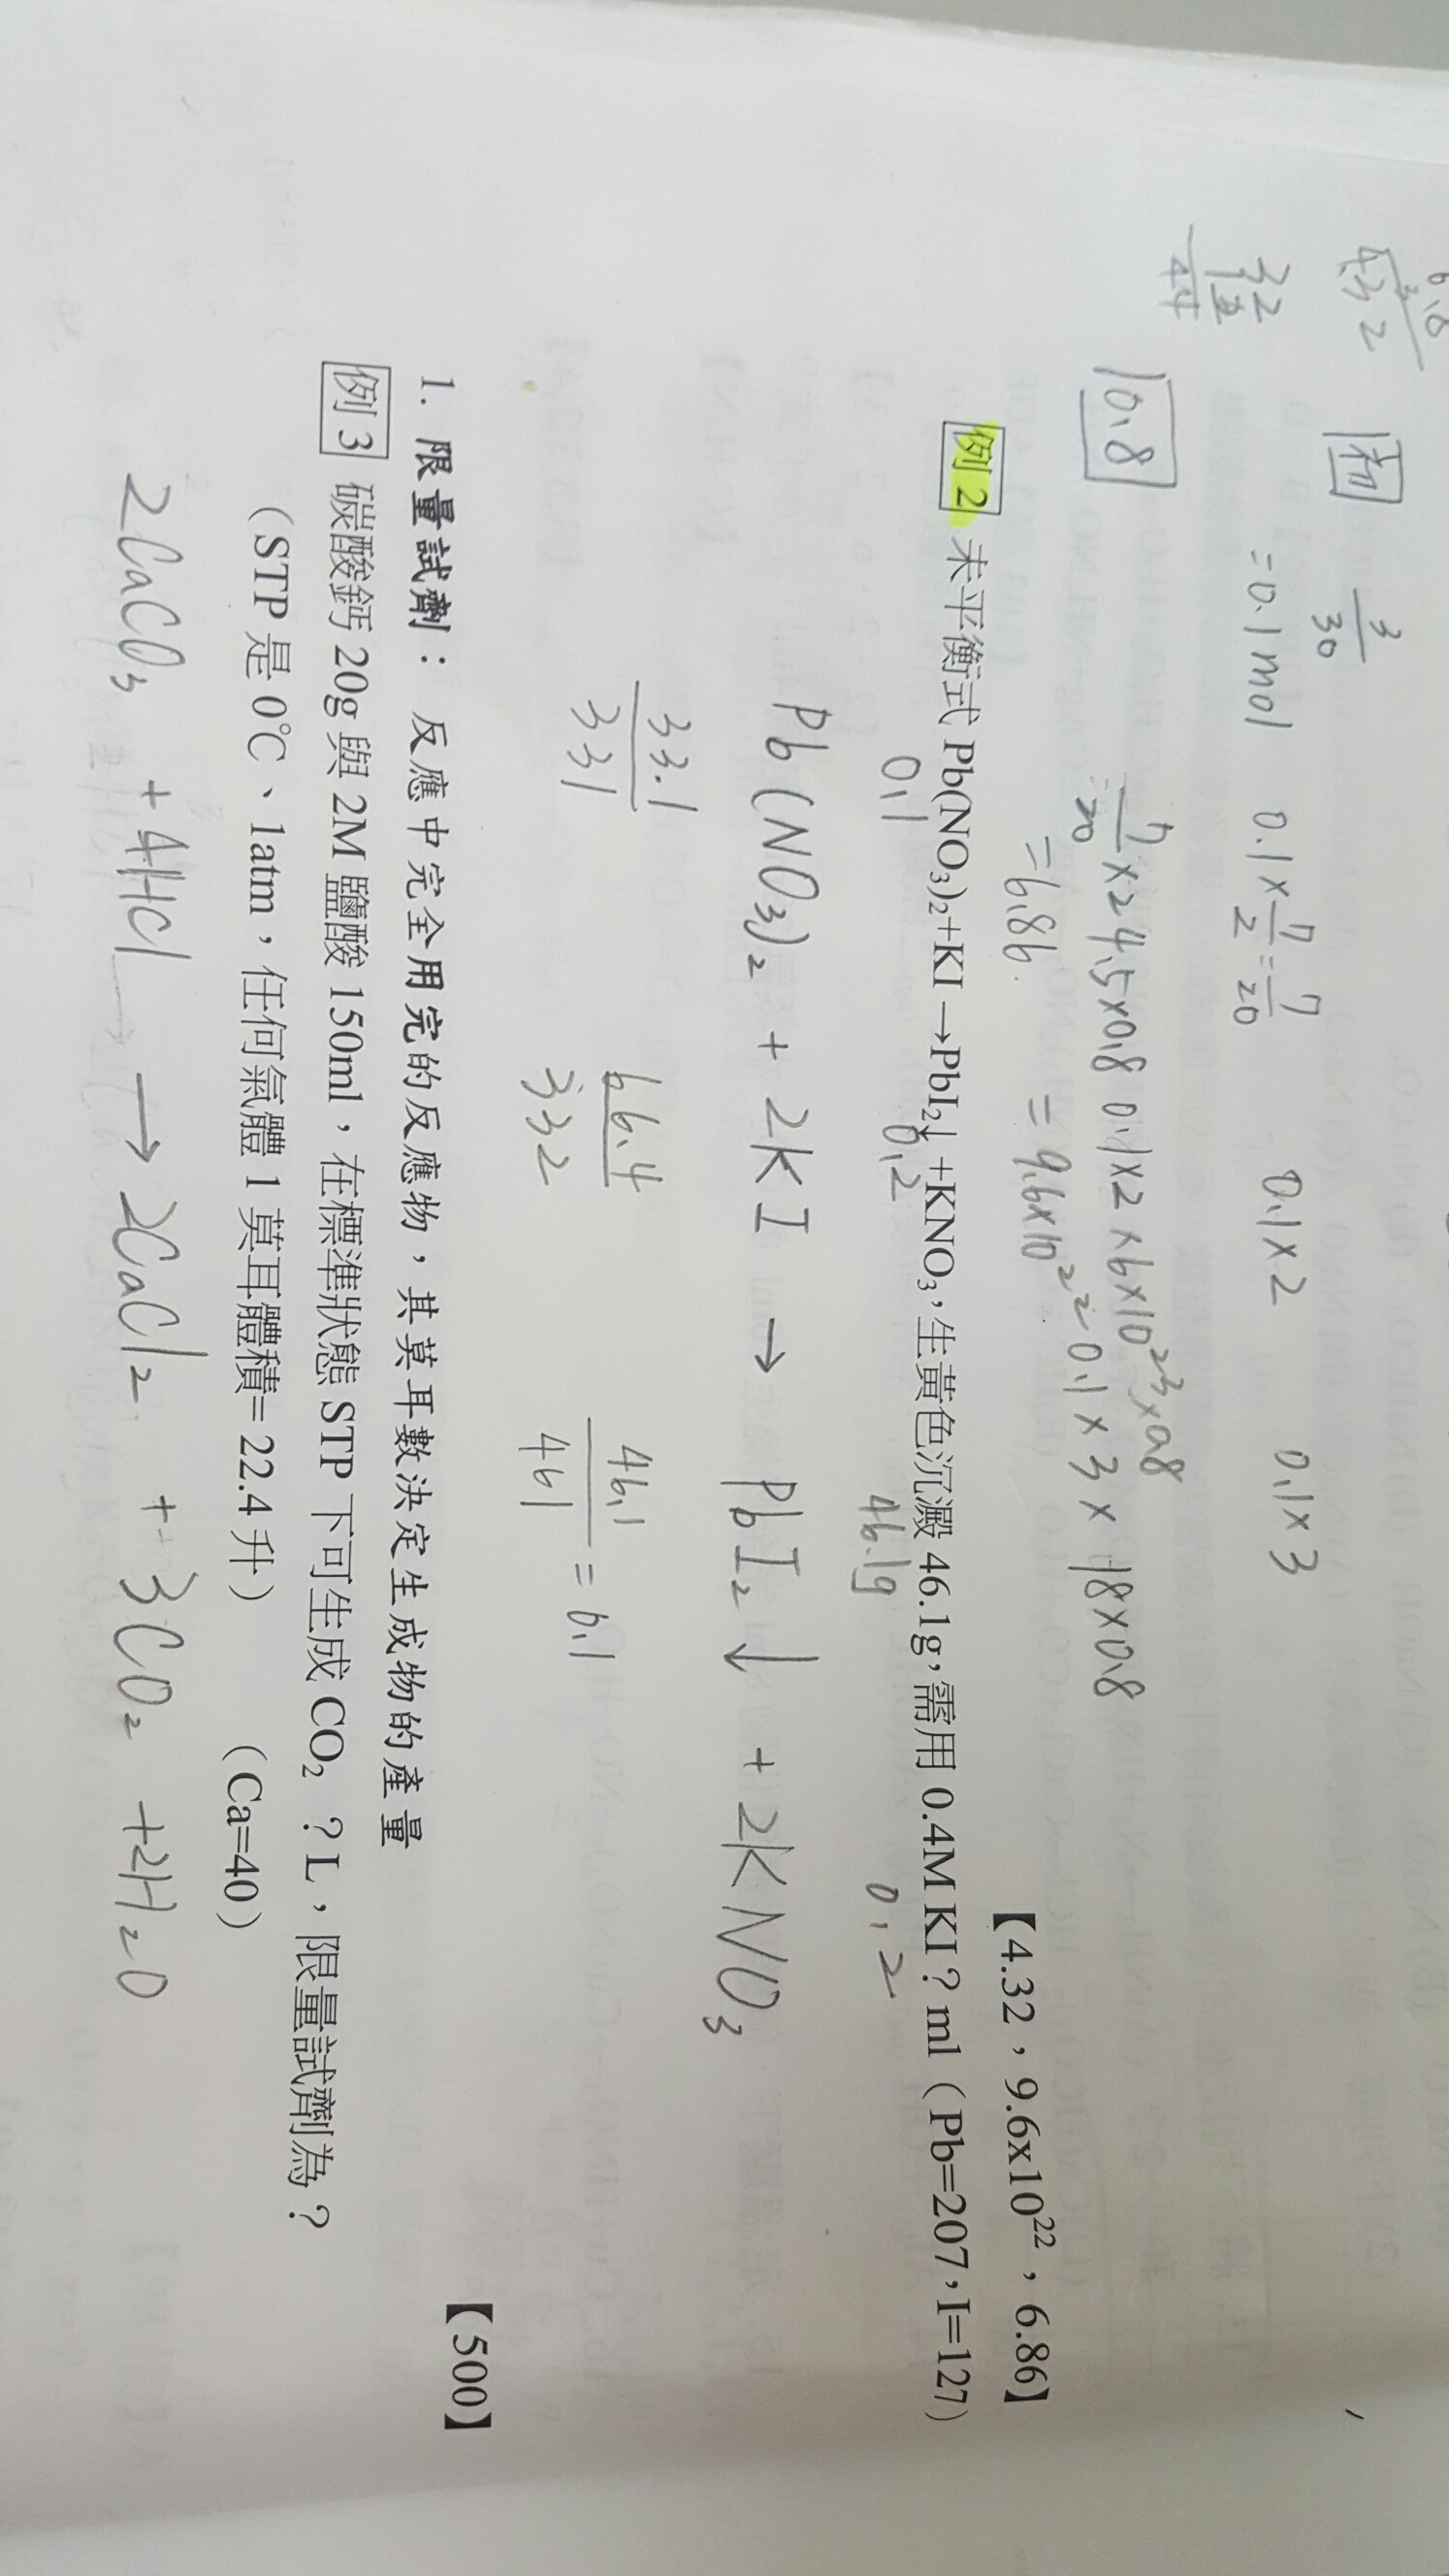 6.8
4.32
32
12
44
初
3/30
=0.1mol 0.1×7/2=7/20 0.1×2 0.1×3
10.8
7/20×24.5×0.8 0.1×2×6×10²³×0.8 0.1×3×18×0.8
=6.86. =9.6×10²²
【4.32，9.6x10²²，6.86】
例 2 未平衡式 Pb(NO₃)₂+KI→PbI₂↓+KNO₃，生黃色沉澱 46.1g，需用 0.4M KI？ml（Pb=207，I=127）
0.1 0.2 46.1g 0.2
Pb(NO₃)₂ + 2KI → PbI₂↓ + 2KNO₃
33.1/331 66.4/332 46.1/461=0.1
【500】
1. 限量試劑：反應中完全用完的反應物，其莫耳數決定生成物的產量
例 3 碳酸鈣 20g 與 2M 鹽酸 150ml，在標準狀態 STP 下可生成 CO₂ ？L，限量試劑為？
（STP 是 0℃、1atm，任何氣體 1 莫耳體積= 22.4 升） （Ca=40）
2CaCO₃ +4HCl → 2CaCl₂ +3CO₂ +2H₂O